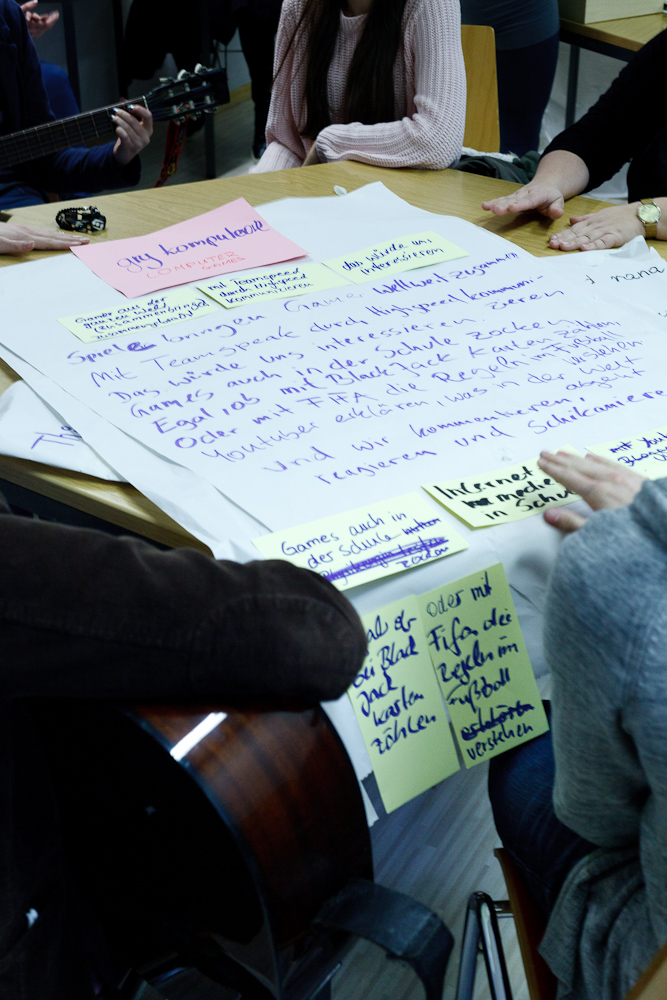 gry komputerowe
COMPUTER
GAMES
Gamer aus der
ganzen Welt
mit Teamspeak
durch Highspeed
kommunizieren
das würde uns
interessieren
Spiele bringen Gamer weltweit zusammen
Mit Teamspeak durch Highspeed kommuni-
Das würde uns interessieren zieren
Games auch in der Schule zocken
Egal, ob mit BlackJack Karten zählen
Oder mit FIFA die Regeln im Fußball
Youtuber erklären, was in der Welt
verstehen
abgeht
und wir kommentieren,
regieren und schikanieren
nana
Internet
in Schul
mit You
Games auch in
der Schule
zocken
ob
bei Black
Jack
Karten
zählen
Oder mit
Fifa die
Regeln im
Fußball
verstehen